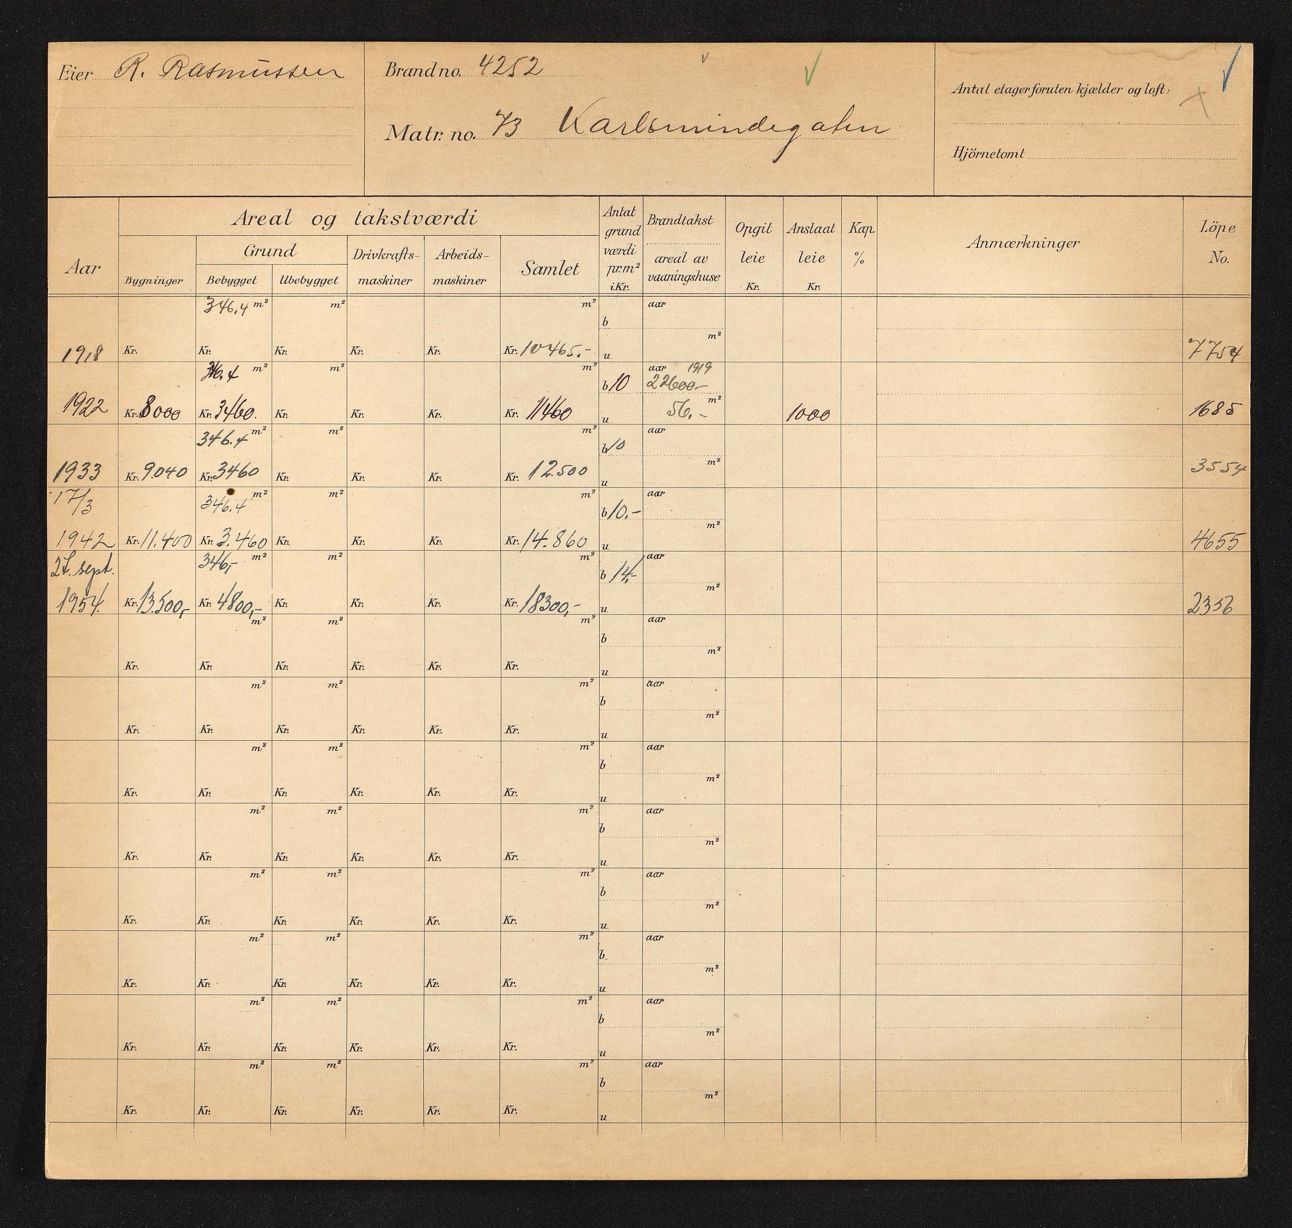 Eier R. Rasmussen
Brand no. 4252
Matr. no. 73 Karlsmindegaten
Antal etager foruten kjælder og loft:
Hjörnetomt
Aar
Areal og takstværdi
Bygninger
Grund
Bebygget
Ubebygget
Drivkrafts-
maskiner
Arbeids-
maskiner
Samlet
Antat
grund
værdi
pr. m²
i Kr.
Brandtakst
areal av
vaaningshuse
Opgit
leie
Kr.
Anslaat
leie
Kr.
Kap.
%
Anmærkninger
Löpe
No.
346.4 m² m² m² b aar m²
1918 Kr. Kr. Kr. Kr. Kr. Kr. 10465.- u 7754
346.4 m² m² m² b 10 aar 1919 22600.- m²
1922 Kr. 8000 Kr. 3460. Kr. Kr. Kr. Kr. 11460 u 56.- 1000 1685
346.4 m² m² m² b 10 aar m²
1933 Kr. 9.040 Kr. 3460 Kr. Kr. Kr. Kr. 12.500 u 3554
17/3 346.4 m² m² m² b 10.- aar m²
1942 Kr. 11.400 Kr. 3.460 Kr. Kr. Kr. Kr. 14.860 u 4655
27. sept. 346,- m² m² m² b 14,- aar m²
1954. Kr. 13.500,- Kr. 4800,- Kr. Kr. Kr. Kr. 18300,- u 2356
m² m² m² b aar m²
Kr. Kr. Kr. Kr. Kr. Kr. u
m² m² m² b aar m²
Kr. Kr. Kr. Kr. Kr. Kr. u
m² m² m² b aar m²
Kr. Kr. Kr. Kr. Kr. Kr. u
m² m² m² b aar m²
Kr. Kr. Kr. Kr. Kr. Kr. u
m² m² m² b aar m²
Kr. Kr. Kr. Kr. Kr. Kr. u
m² m² m² b aar m²
Kr. Kr. Kr. Kr. Kr. Kr. u
m² m² m² b aar m²
Kr. Kr. Kr. Kr. Kr. Kr. u
m² m² m² b aar m²
Kr. Kr. Kr. Kr. Kr. Kr. u